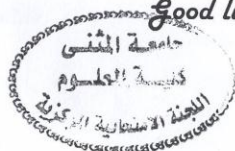 Good l
جامعة المثنى
كلية العلوم
اللجنة الامتحانية المركزية